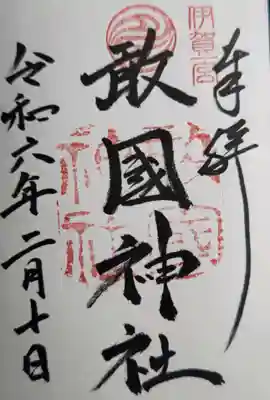 奉拝
伊賀一宮
敢國神社
令和六年二月十日